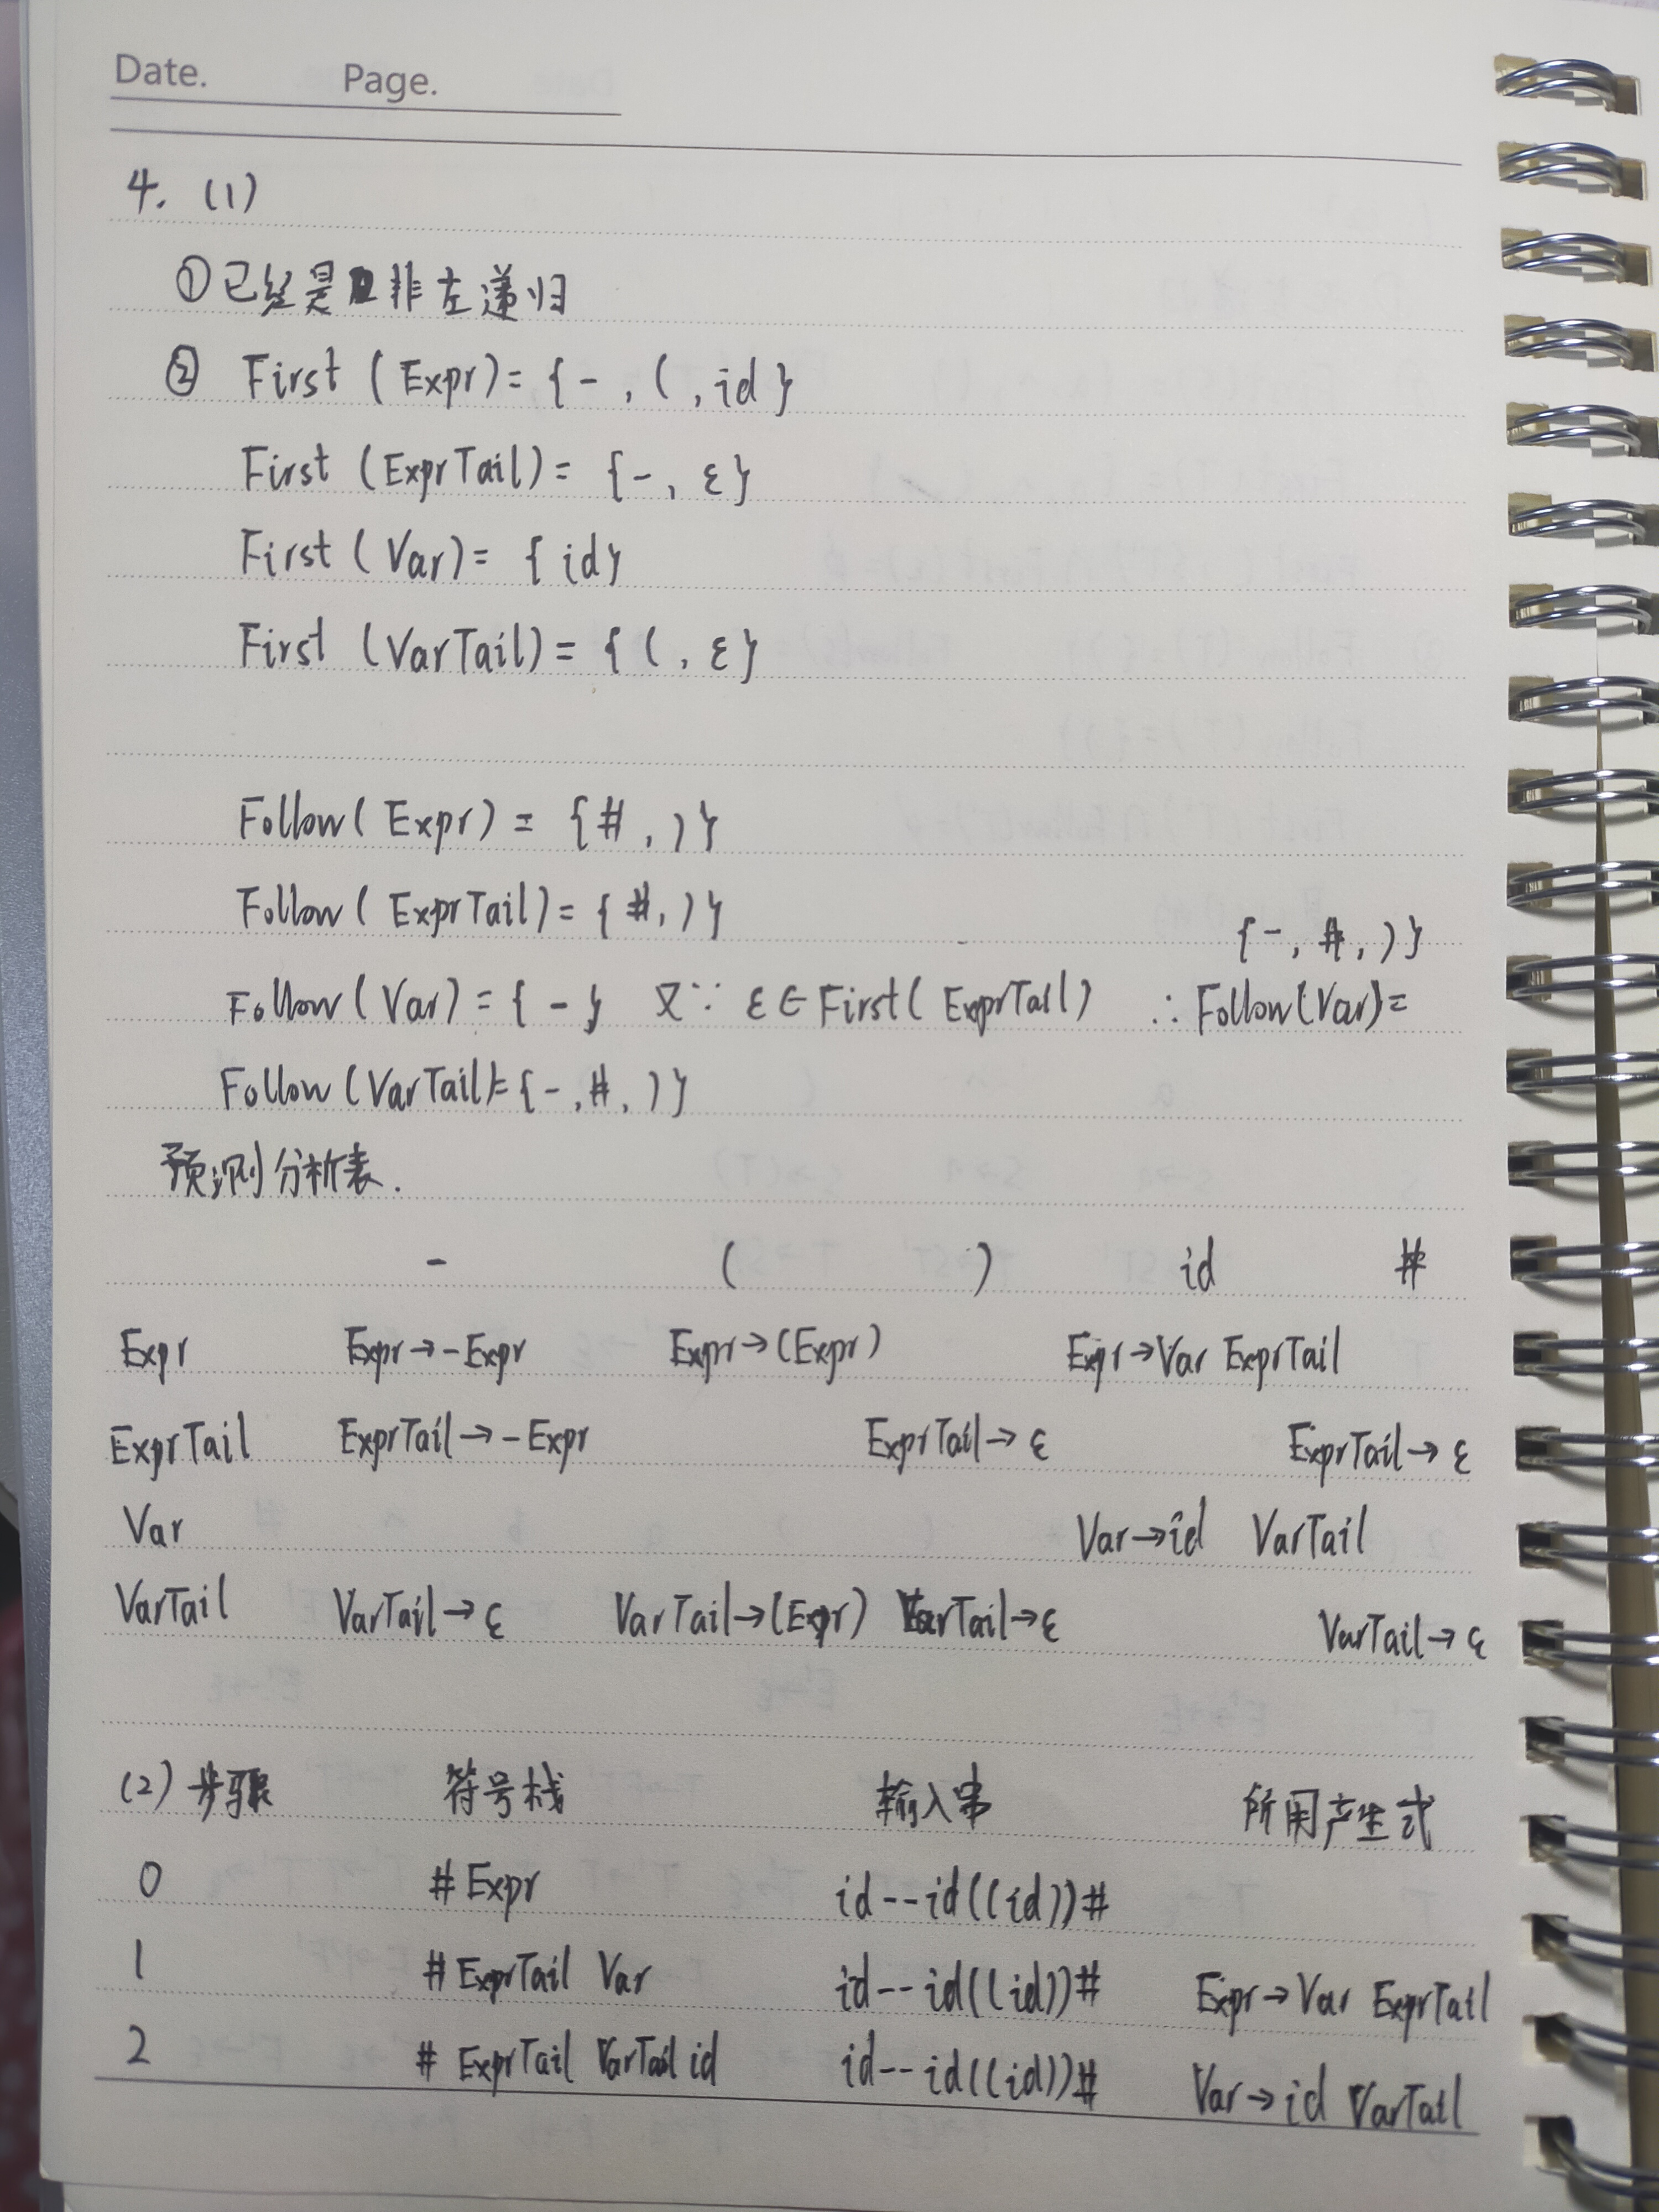 Date. Page.
4. (1)
①已经是非左递归
② First (Expr) = {-, (, id}
First (ExprTail) = {-, ε}
First (Var) = {id}
First (VarTail) = {(, ε}
Follow (Expr) = {#, )}
Follow (ExprTail) = {#, )}
{-, #, )}
Follow (Var) = {-} 又∵ ε∈First(ExprTail) ∴Follow(Var)=
Follow (VarTail)={-, #, )}
预测分析表.
- ( ) id #
Expr Expr→-Expr Expr→(Expr) Expr→Var ExprTail
ExprTail ExprTail→-Expr ExprTail→ε ExprTail→ε
Var Var→id VarTail
VarTail VarTail→ε VarTail→(Expr) VarTail→ε VarTail→ε
(2) 步骤 符号栈 输入串 所用产生式
0 #Expr id--id((id))#
1 #ExprTail Var id--id((id))# Expr→Var ExprTail
2 # ExprTail VarTail id id--id((id))# Var→id VarTail